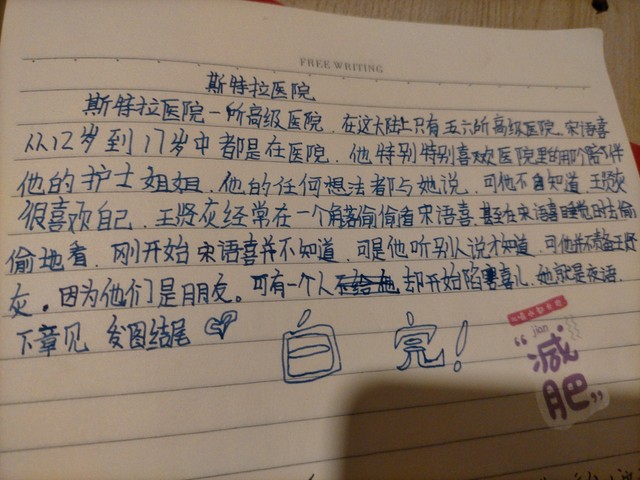 FREE WRITING
斯特拉医院
斯特拉医院一所高级医院，在这大陆上只有五六所高级医院，宋语喜
从12岁到17岁中都是在医院，他特别特别喜欢医院里的那个陪伴
他的护士姐姐，他的任何想法都与她说，可他不自知道，王贤灰
很喜欢自己，王贤灰经常在一个角落偷偷看宋语喜，甚至在宋语喜睡觉时去偷
偷地看，刚开始宋语喜并不知道，可是他听别人说才知道，可他并不责备王贤
灰。因为他们是朋友。可有一个人却开始陷害喜儿，她就是夜语，
下章见 发图结尾
白 完！
jian
“减
肥”